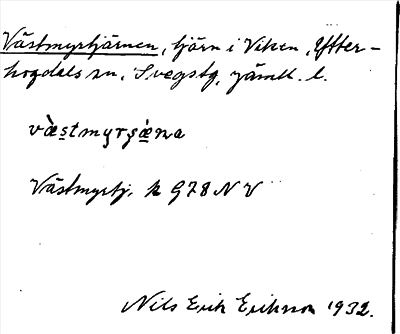 Västmyrtjärnen, tjärn i Viken, Ytter-
hogdals sn, Svegs tg, Jämtl. l.
västmyrșä̀na
Västmyrtj. k 978 N V
Nils Erik Erikson 1932.